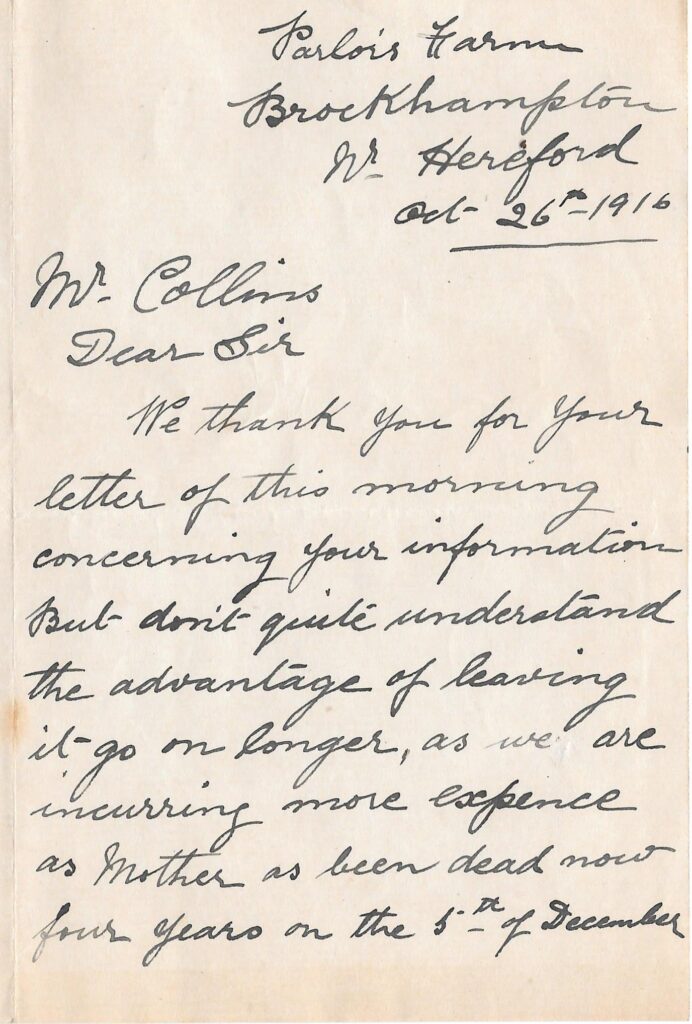 Parlors Farm
Brockhampton
Nr Hereford
Oct 26th 1916
Mr. Collins
Dear Sir
We thank you for your
letter of this morning
concerning your information
But don't quite understand
the advantage of leaving
it go on longer, as we are
incurring more expence
as Mother as been dead now
four years on the 5th of December